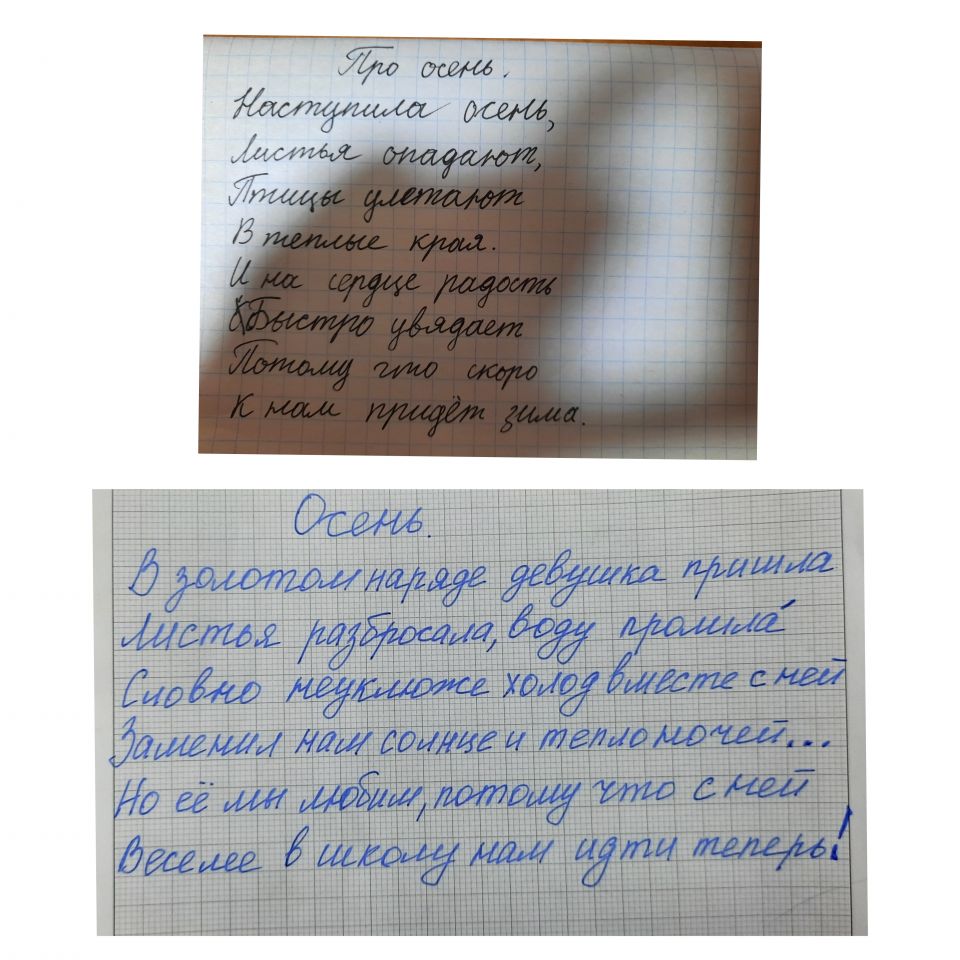 Про осень.
Наступила осень,
Листья опадают,
Птицы улетают
В теплые края.
И на сердце радость
Быстро увядает
Потому что скоро
К нам придёт зима.
Осень.
В золотом наряде девушка пришла
Листья разбросала, воду пролила́
Словно неуклюже холод вместе с ней
Заменил нам солнце и тепло ночей...
Но её мы любим, потому что с ней
Веселее в школу нам идти теперь!